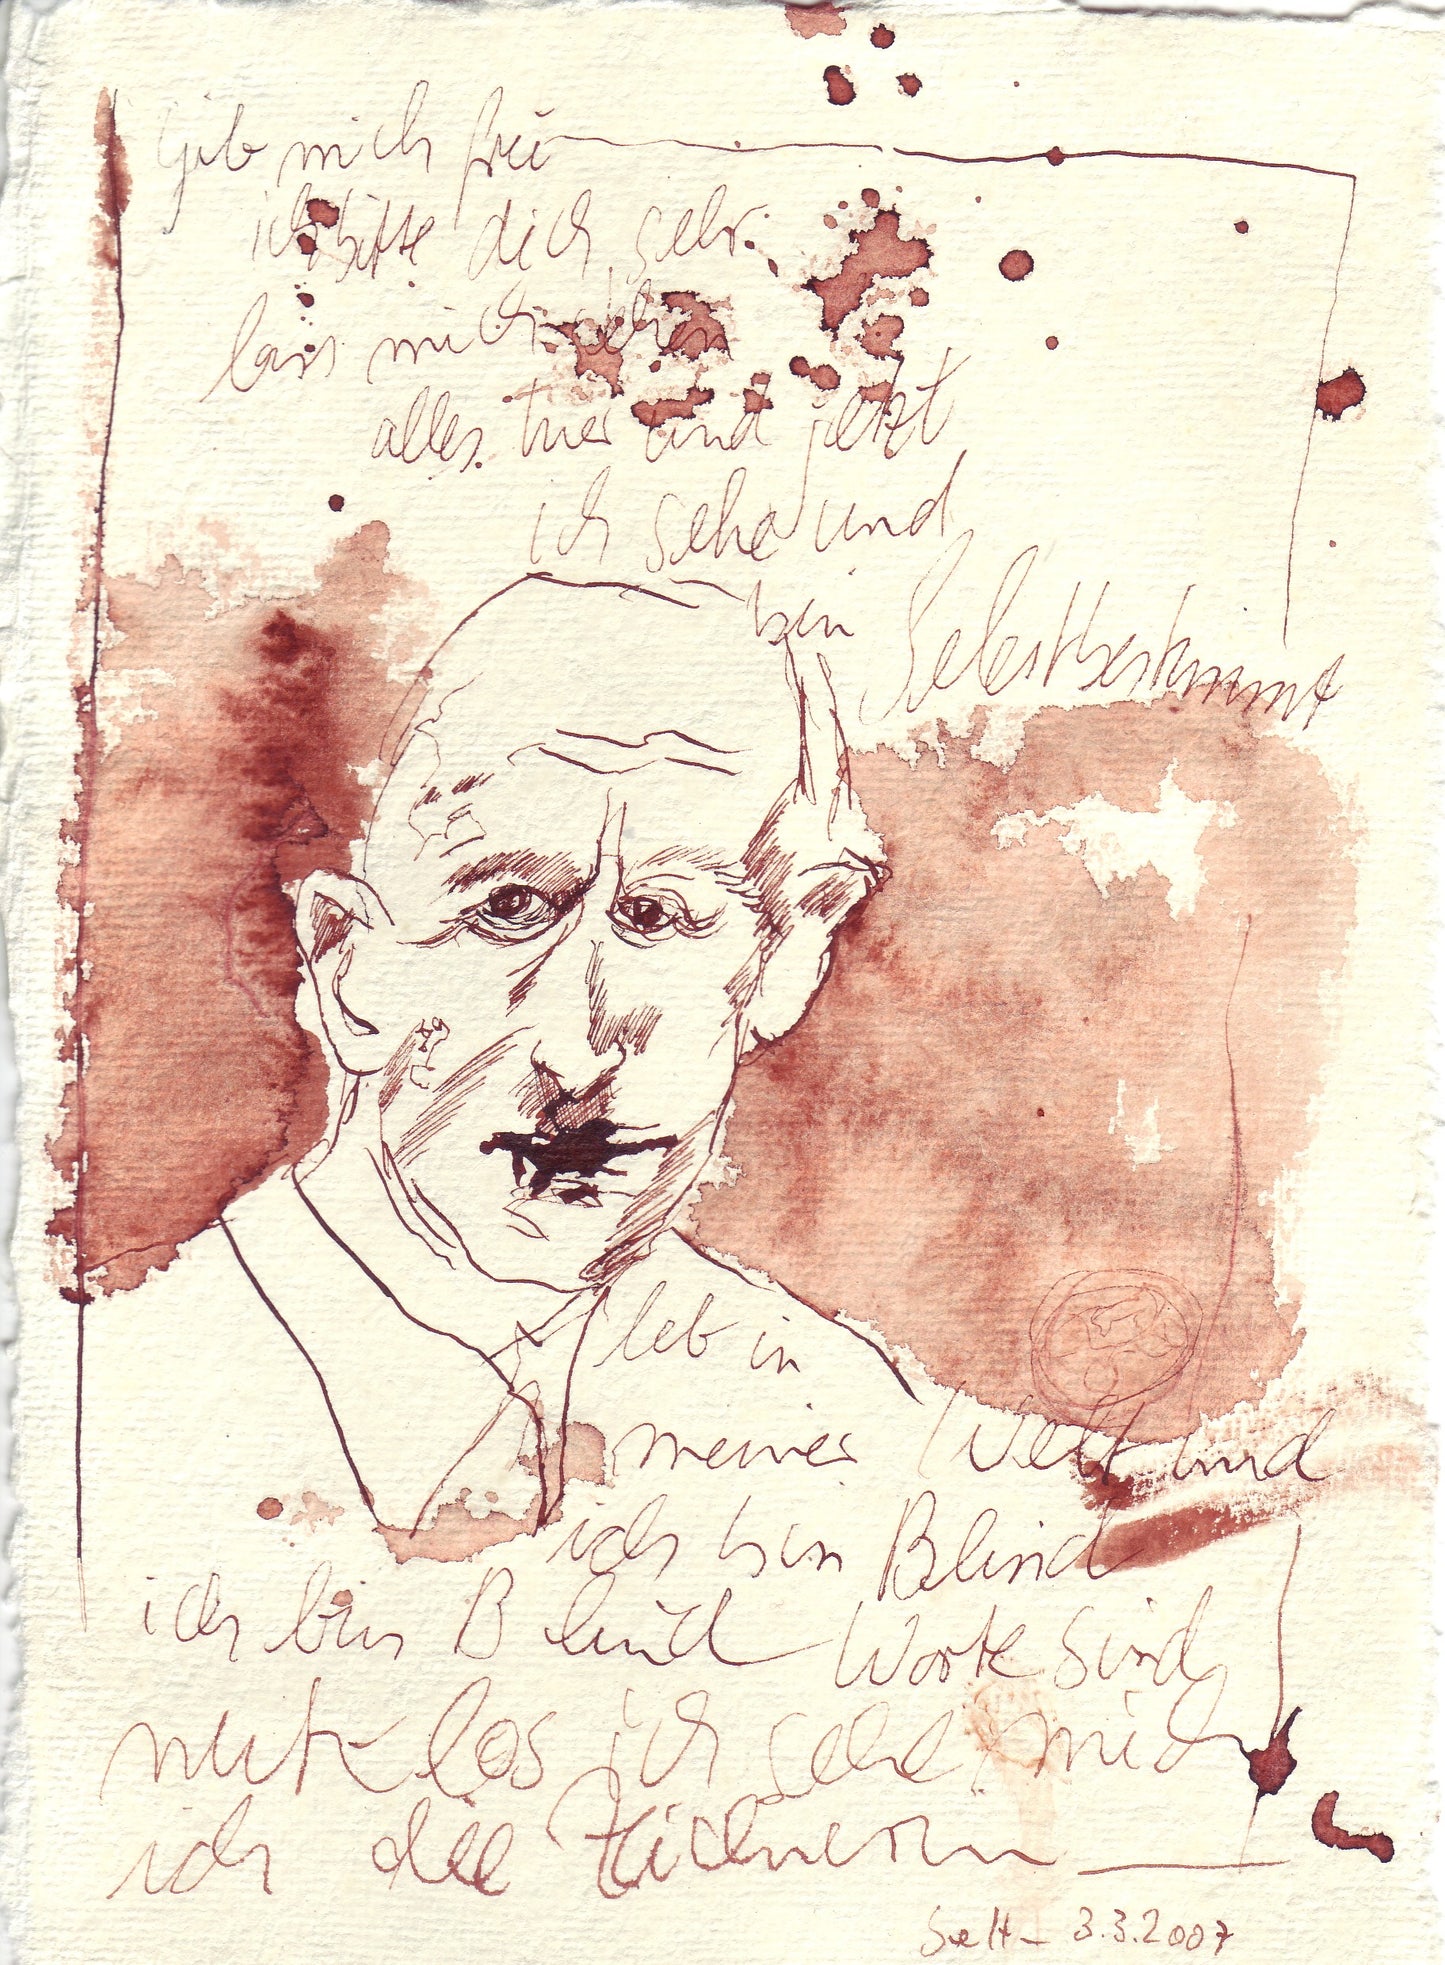 Gib mich frei
ich bitte dich sehr.
lass mich sehen
alles. hier und jetzt
ich sehe und
bin Selbstbestimmt
leb in
meiner Welt und
ich bin Blind
ich bin Blind Worte sind
nutzlos ich sehe mich
ich die Zeichnerin
3.3.2007